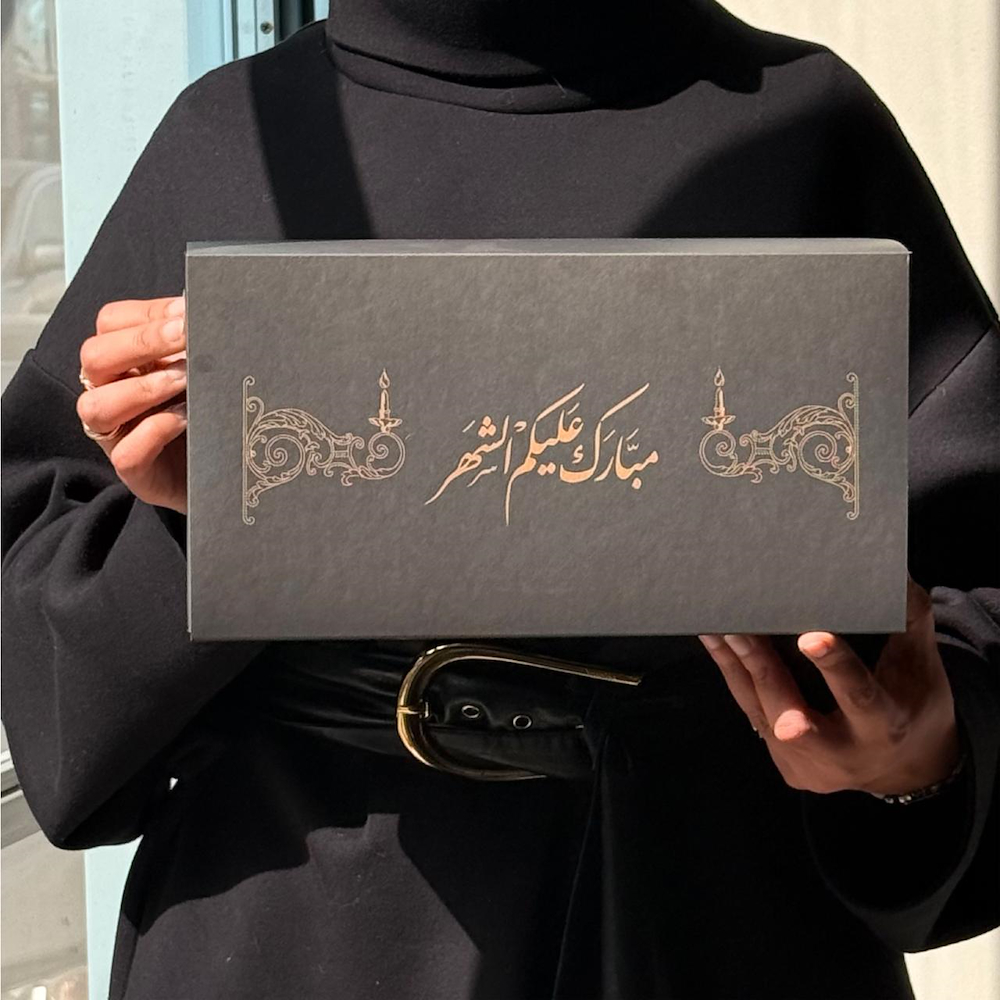 مبَارَك عَليكُم الشهَر